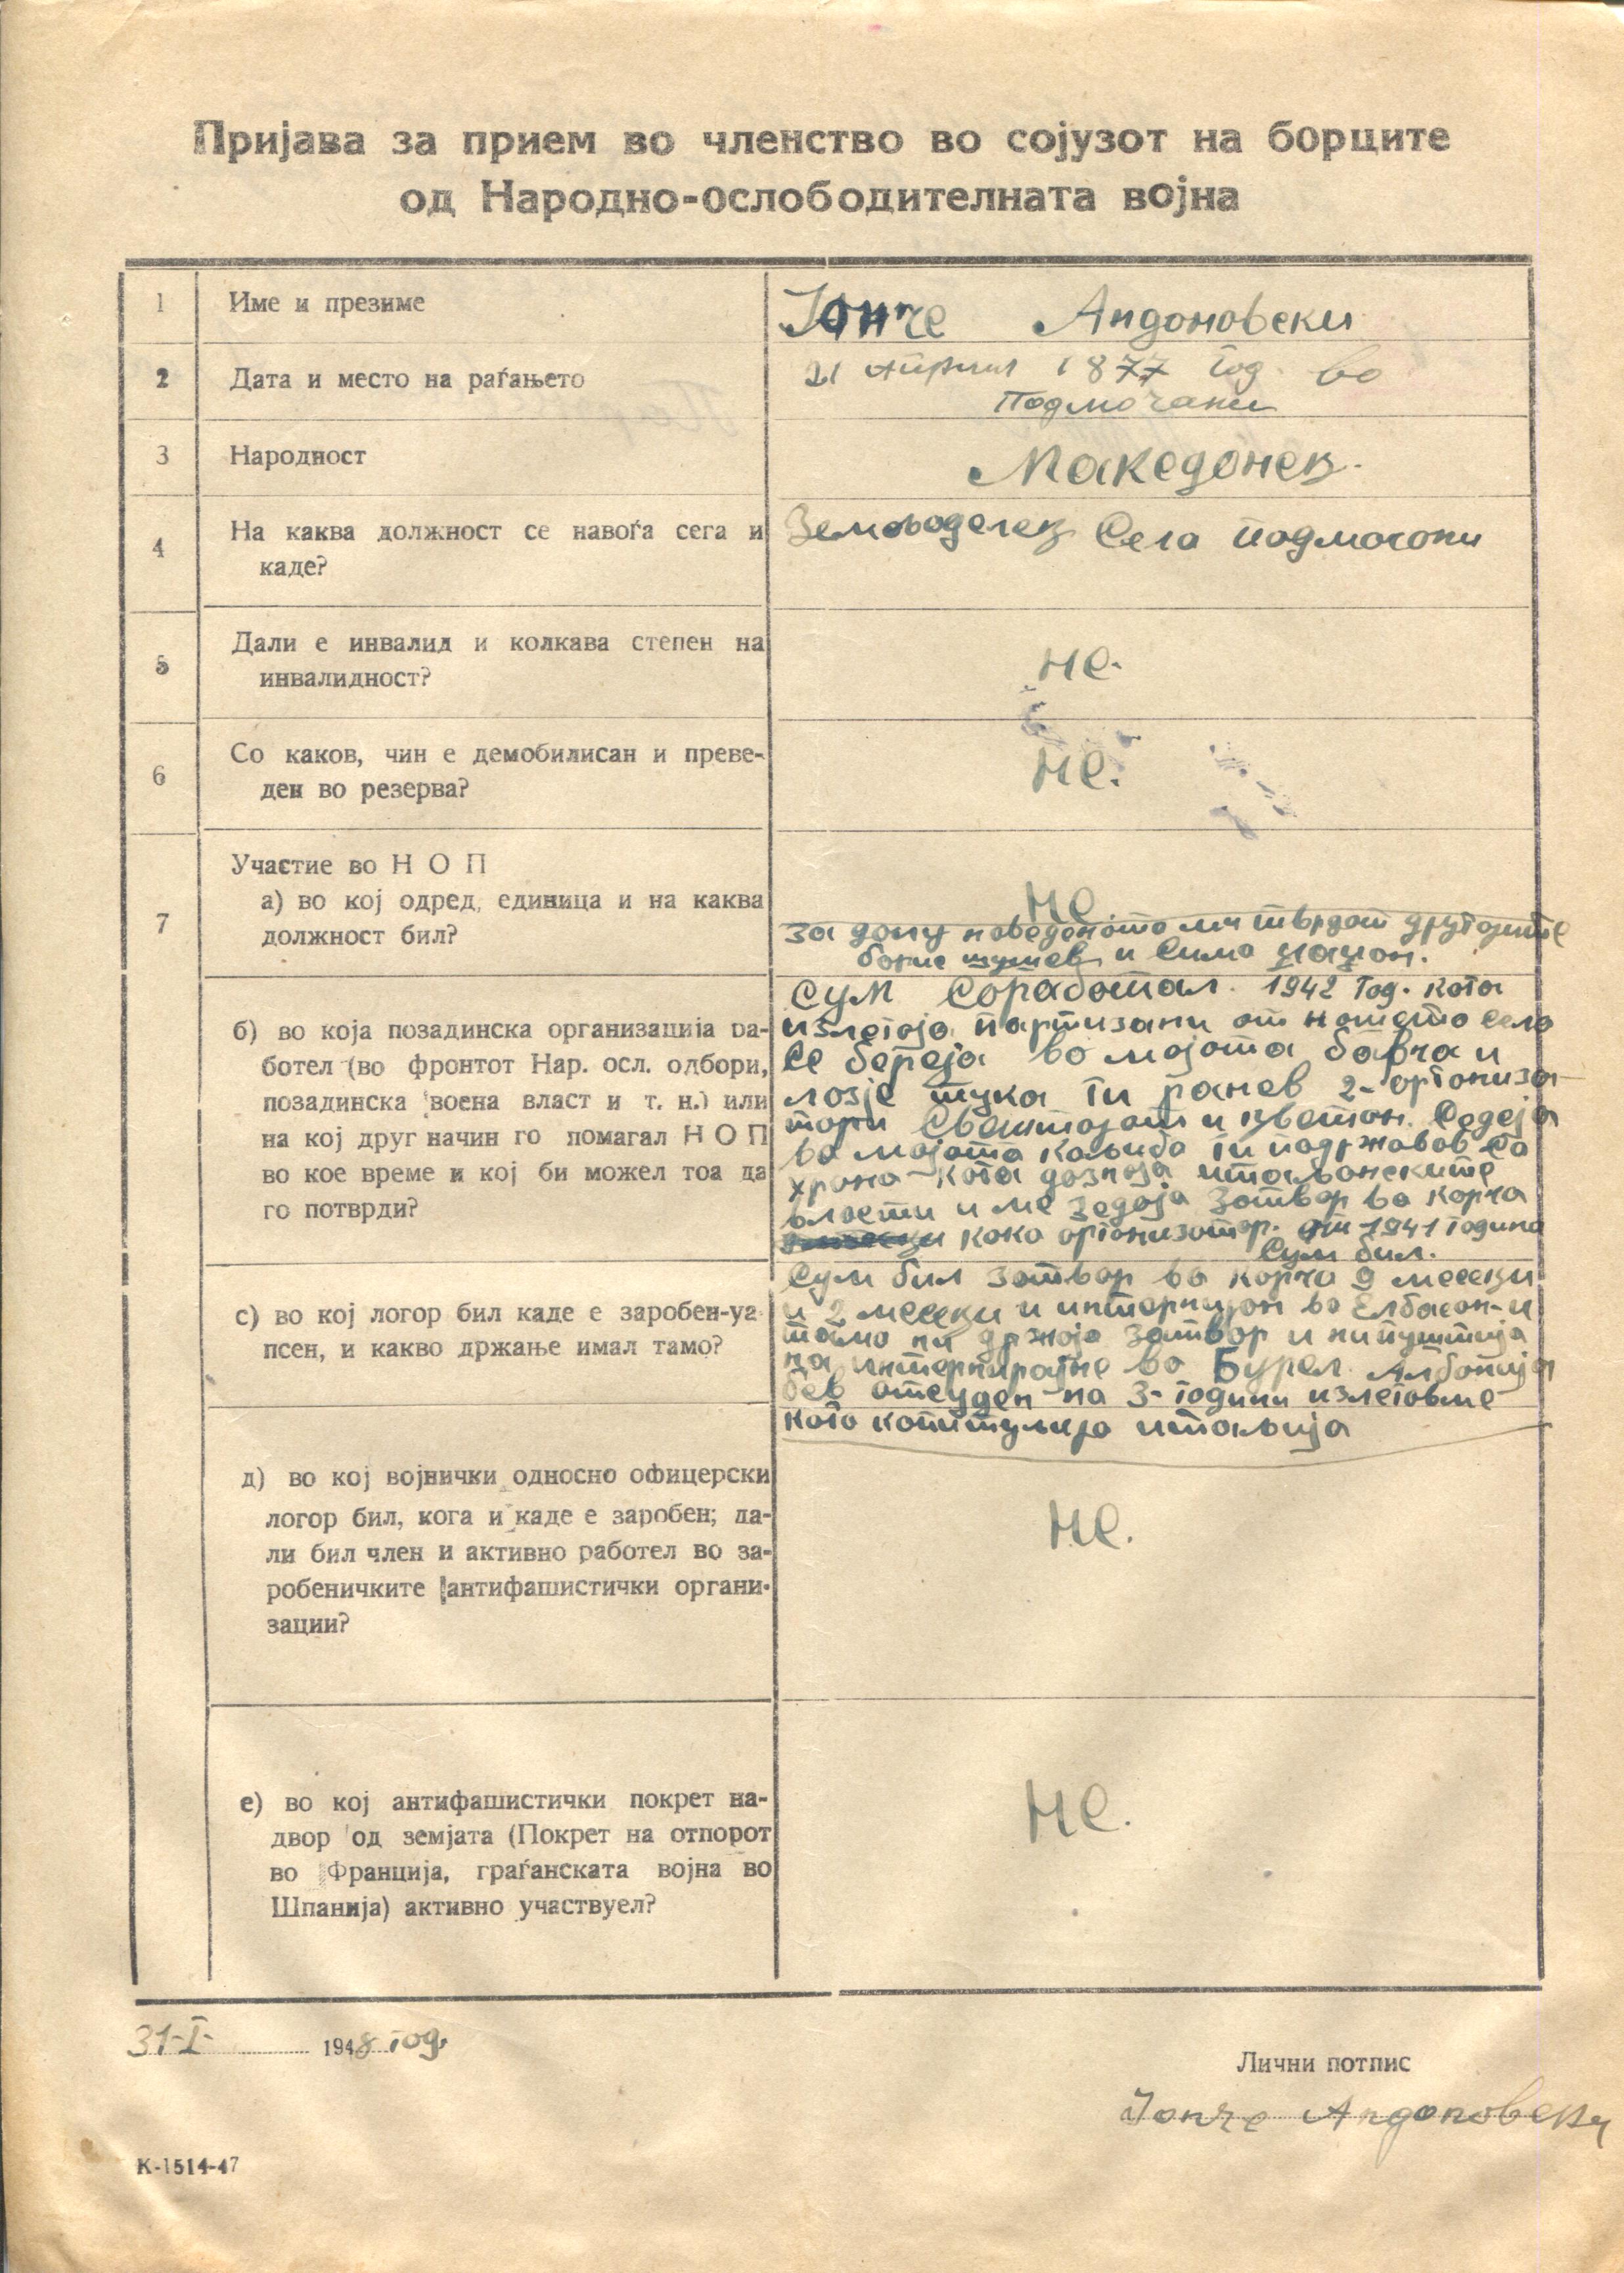 Пријава за прием во членство во сојузот на борците
од Народно-ослободителната војна
1 Име и презиме
Јонче Андоновски
2 Дата и место на раѓањето
21 април 1877 год. во
Подмочани
3 Народност
Македонец.
4 На каква должност се навоѓа сега и
каде?
Земјоделец Село подмочани
5 Дали е инвалид и колкава степен на
инвалидност?
не.
6 Со каков, чин е демобилисан и преве-
ден во резерва?
не.
7 Участие во Н О П
а) во кој одред, единица и на каква
должност бил?
не
за долу наведеното ми тврдат другарите
борис шушев и Симо
б) во која позадинска организација ра-
ботел (во фронтот Нар. осл. одбори,
позадинска воена власт и т. н.) или
на кој друг начин го помагал Н О П
во кое време и кој би можел тоа да
го потврди?
Сум Соработал. 1942 год. кога
излегоја партизани от нашето село
Се береја во мојата бавча и
лозје тука ги ранев 2-организа-
тори Свештојот и цветан. Седеја
во мојата колиба ги подржавов со
храна кога дознаја итальонските
власти и ме зедоја затвор во корча
како организатор. от 1941 година
Сум бил.
с) во кој логор бил каде е заробен-уа-
псен, и какво држање имал тамо?
Сум бил затвор во корча 9 месеци
и 2 месеци и интерниран во Елбасан-и
тамо ни држаја затвор и ни пуштија
на интернирајне во Бурел Албанија
бев отсуден на 3-години излеговме
кога капитулира италија
д) во кој војнички односно офицерски
логор бил, кога и каде е заробен; да-
ли бил член и активно работел во за-
робеничките антифашистички органи-
зации?
не.
е) во кој антифашистички покрет на-
двор од земјата (Покрет на отпорот
во Франција, граѓанската војна во
Шпанија) активно участвуел?
не.
31-I- 1948 год.
Лични потпис
Јонче Андоновски
К-1514-47